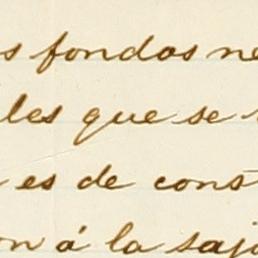 s fondos ne
les que se
es de cons
on á la saja